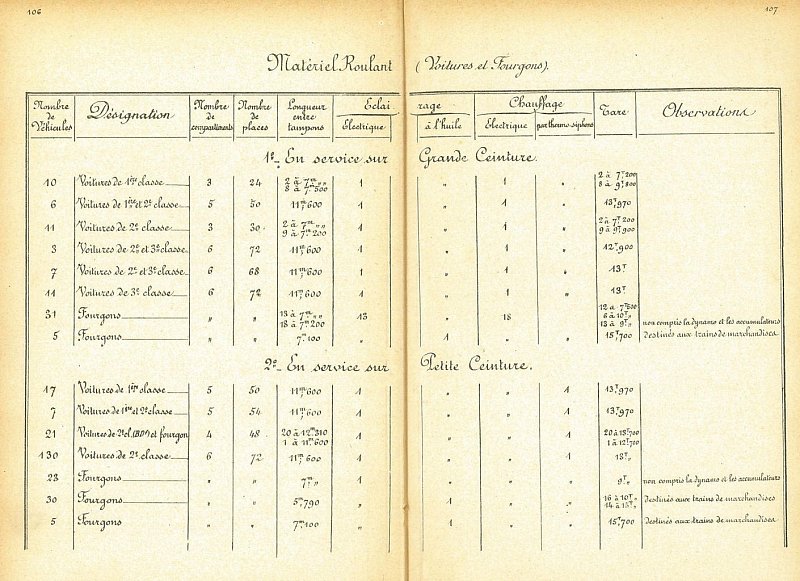 106
107
Matériel Roulant (Voitures et Fourgons).
Nombre de Véhicules | Désignation | Nombre de compartiments | Nombre de places | Longueur entre tampons | Éclairage Electrique | à l'huile | Chauffage Électrique | par thermo-siphons | Tare | Observations
1º_ En service sur Grande Ceinture.
10 | Voitures de 1ère classe | 3 | 24 | 2 à 7m „ 8 à 7m,500 | 1 | „ | 1 | „ | 2 à 7T,200 8 à 9T,800
6 | Voitures de 1ère et 2e classe | 5 | 50 | 11m,600 | 1 | „ | 1 | „ | 13T,970
11 | Voitures de 2e classe | 3 | 30 | 2 à 7m „ 9 à 7m,200 | 1 | „ | 1 | „ | 2 à 7T,200 9 à 9T,900
3 | Voitures de 2e et 3e classe | 6 | 72 | 11m,600 | 1 | „ | 1 | „ | 12T,900
7 | Voitures de 2e et 3e classe | 6 | 68 | 11m,600 | 1 | „ | 1 | „ | 13T
11 | Voitures de 3e classe | 6 | 72 | 11m,600 | 1 | „ | 1 | „ | 13T
31 | Fourgons | „ | „ | 13 à 7m „ 18 à 7m,200 | 13 | „ | 18 | „ | 12 à 7T,600 6 à 10T „ 13 à 9T „ | non compris la dynamo et les accumulateurs
5 | Fourgons | „ | „ | 7m,100 | „ | 1 | „ | „ | 15T,700 | destinés aux trains de marchandises
2º_ En service sur Petite Ceinture.
17 | Voitures de 1ère classe | 5 | 50 | 11m,600 | 1 | „ | „ | 1 | 13T,970
7 | Voitures de 1ère et 2e classe | 5 | 54 | 11m,600 | 1 | „ | „ | 1 | 13T,970
21 | Voitures de 2e cl. et fourgon | 4 | 48 | 20 à 12m,310 1 à 11m,600 | 1 | „ | „ | 1 | 20 à 13T,700 1 à 12T,700
130 | Voitures de 2e classe | 6 | 72 | 11m,600 | 1 | „ | „ | 1 | 13T „
23 | Fourgons | „ | „ | 7m „ | 1 | „ | „ | „ | 9T „ | non compris la dynamo et les accumulateurs
30 | Fourgons | „ | „ | 5m,790 | „ | 1 | „ | „ | 16 à 10T „ 14 à 13T „ | destinés aux trains de marchandises
5 | Fourgons | „ | „ | 7m,100 | „ | 1 | „ | „ | 15T,700 | destinés aux trains de marchandises